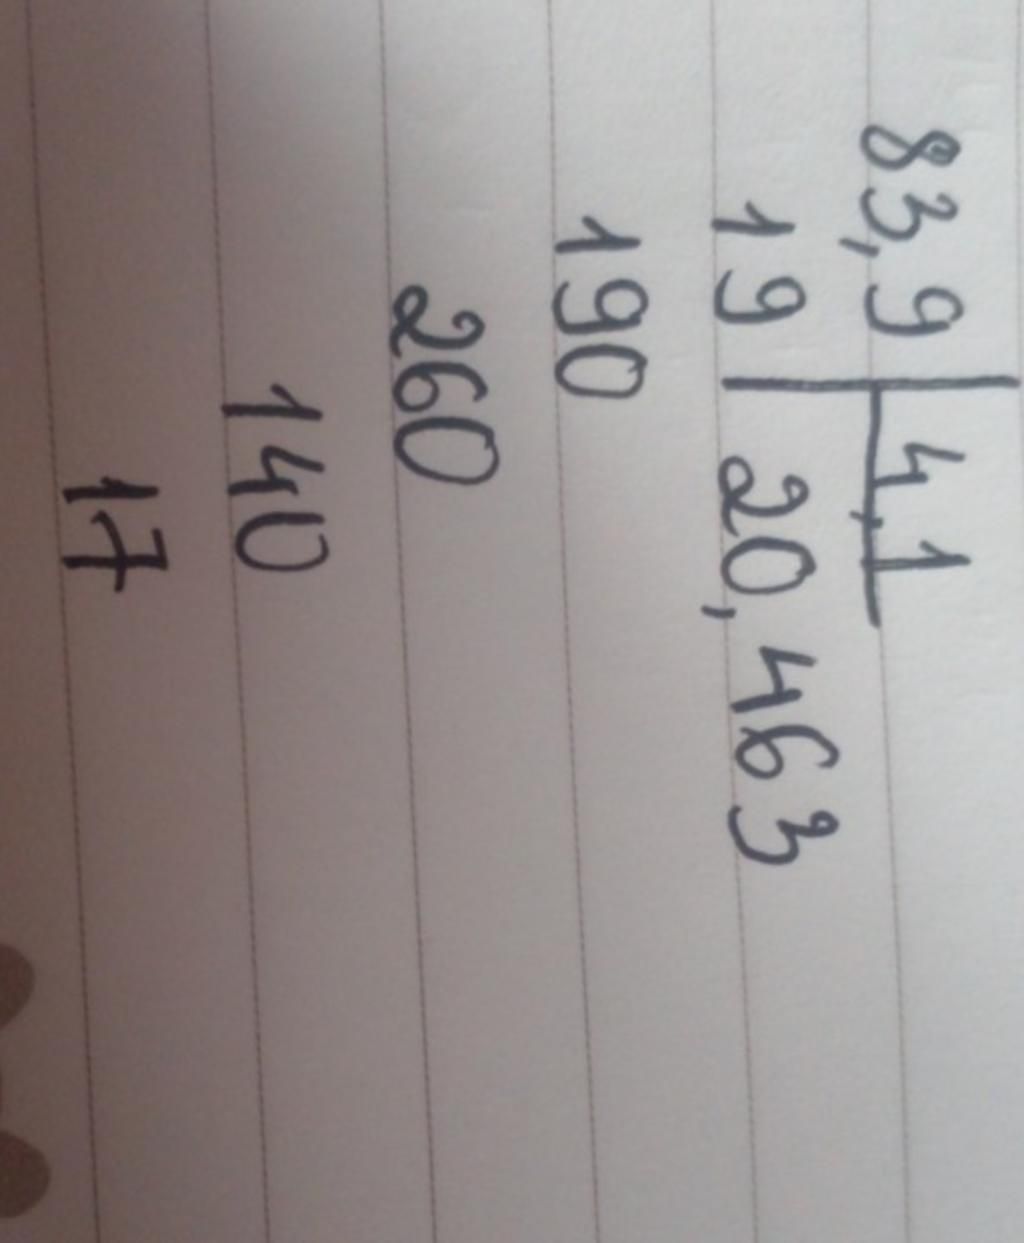 83,9 | 4,1
19 | 20,463
190
260
140
17